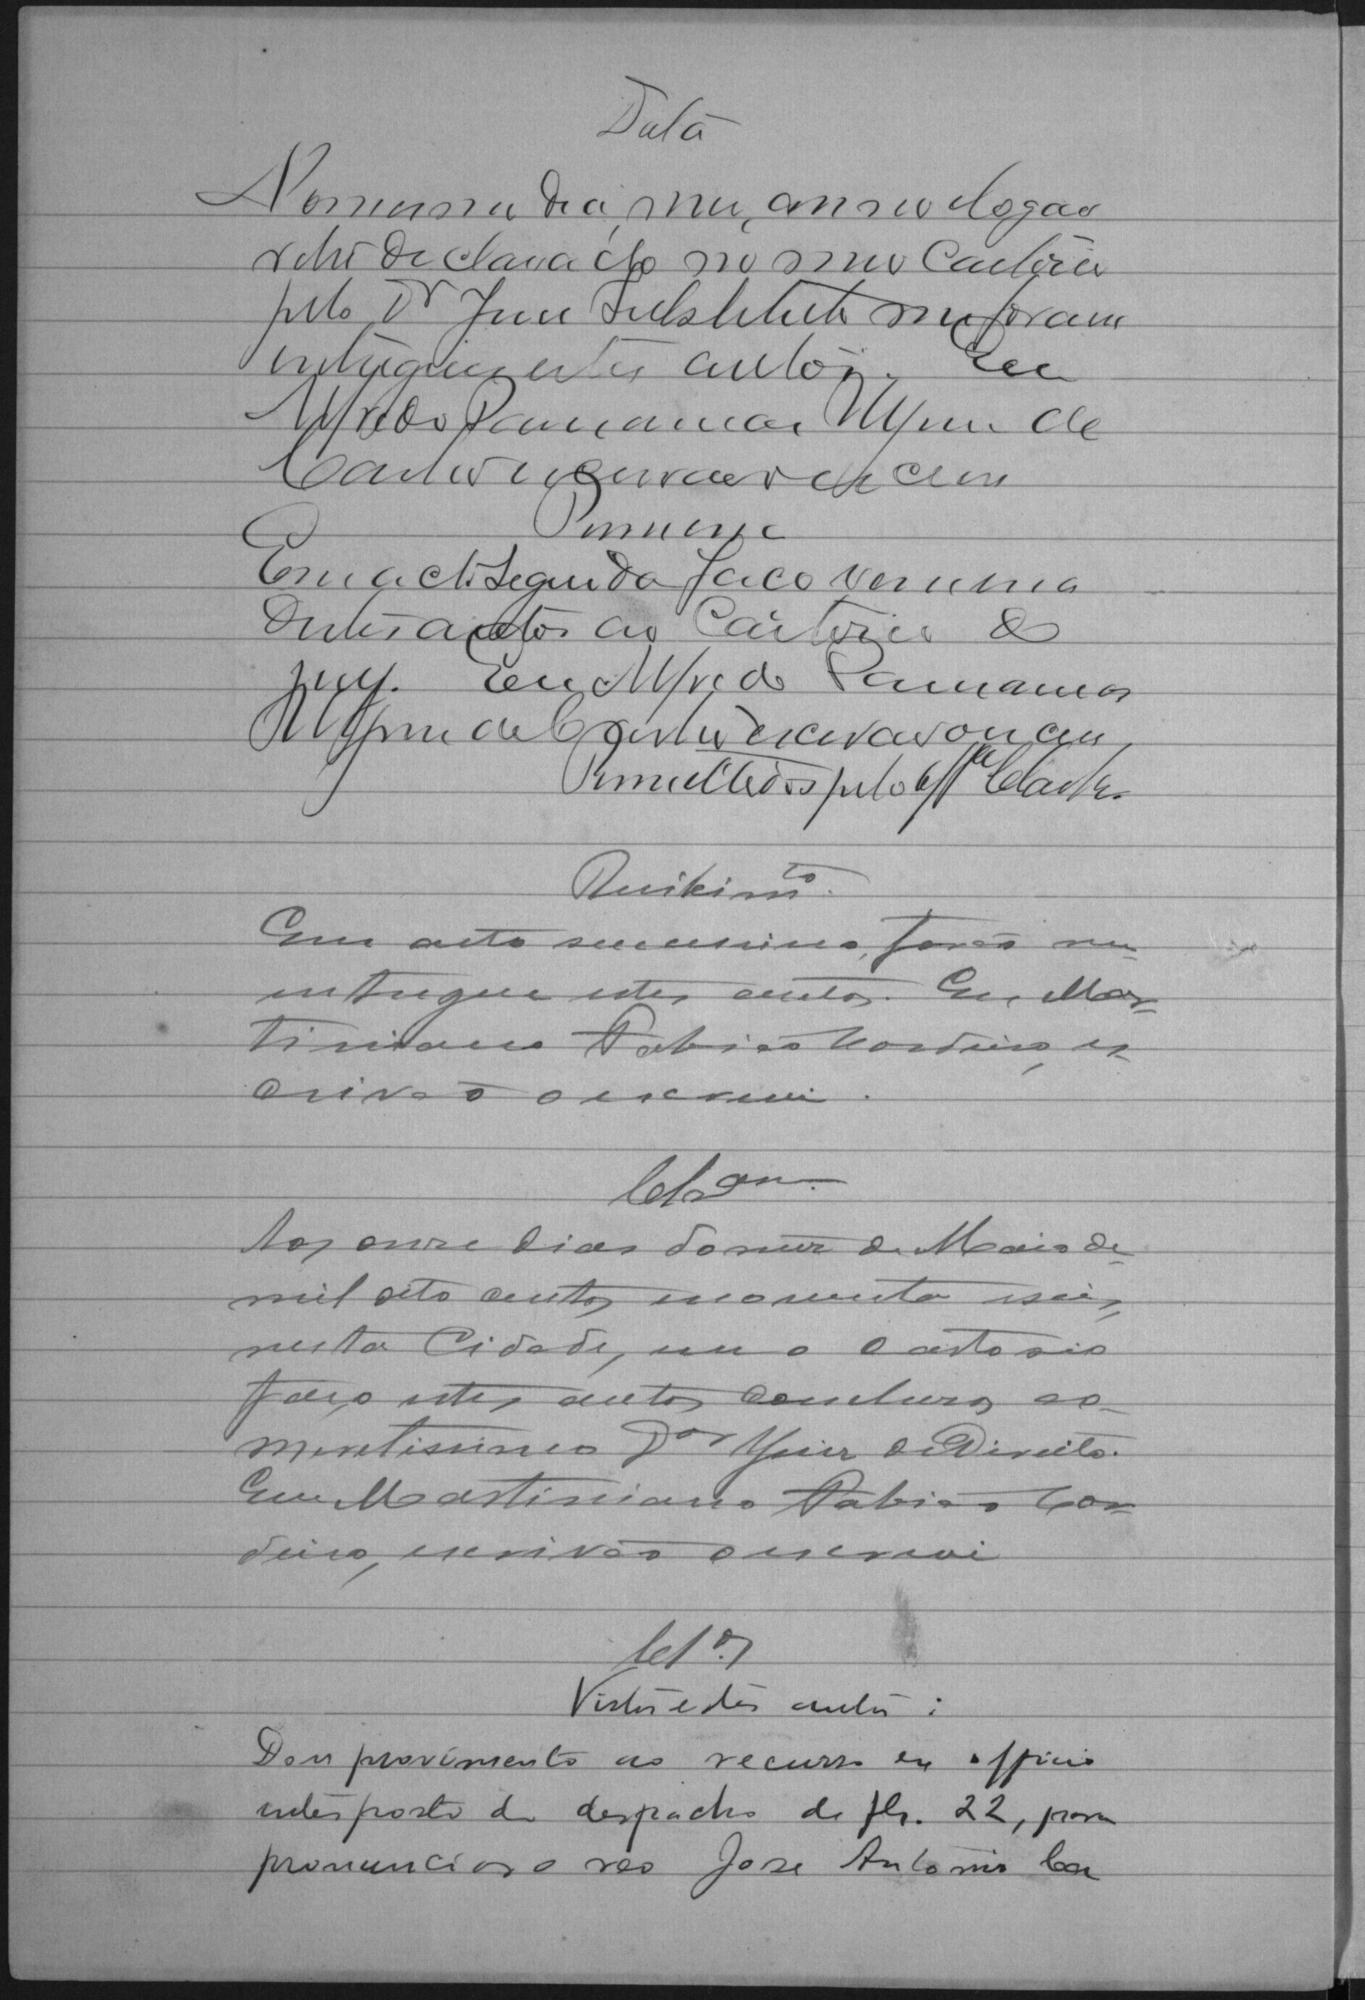 Data
No mesmo dia, mez, anno e logar
retro declarado no meo Cartorio
pelo Dr Juiz Substituto me foram
entregues estes autos. Eu
Alfredo Pannamar Alypiu de
Castro escrivão o escrevi
Remessa
Em acto seguido faço remessa
destes autos ao Cartorio do
jury. Eu Alfredo Pannamar
Alypiu de Castro escrivão o escrevi
Remettidos pelo Castro
Recebim.to
Em acto successivo, forão me
entregue estes autos. Eu, Mar-
tiniano Fabião Cordeiro, es-
crivão o escrevi.
Cls.am
Aos onze dias do mez de Maio de
mil oito centos noventa e seis,
nesta Cidade, em o Cartorio
faço estes autos conclusos ao
meretissimo Dor Juiz de Direito.
Eu Martiniano Fabião Cor-
deiro, escrivão o escrevi
Cls.os
Vistos estes autos:
Dou provimento ao recurso ex officio
interposto do despacho de fls. 22, para
pronunciar o reo Jose Antonio Ca